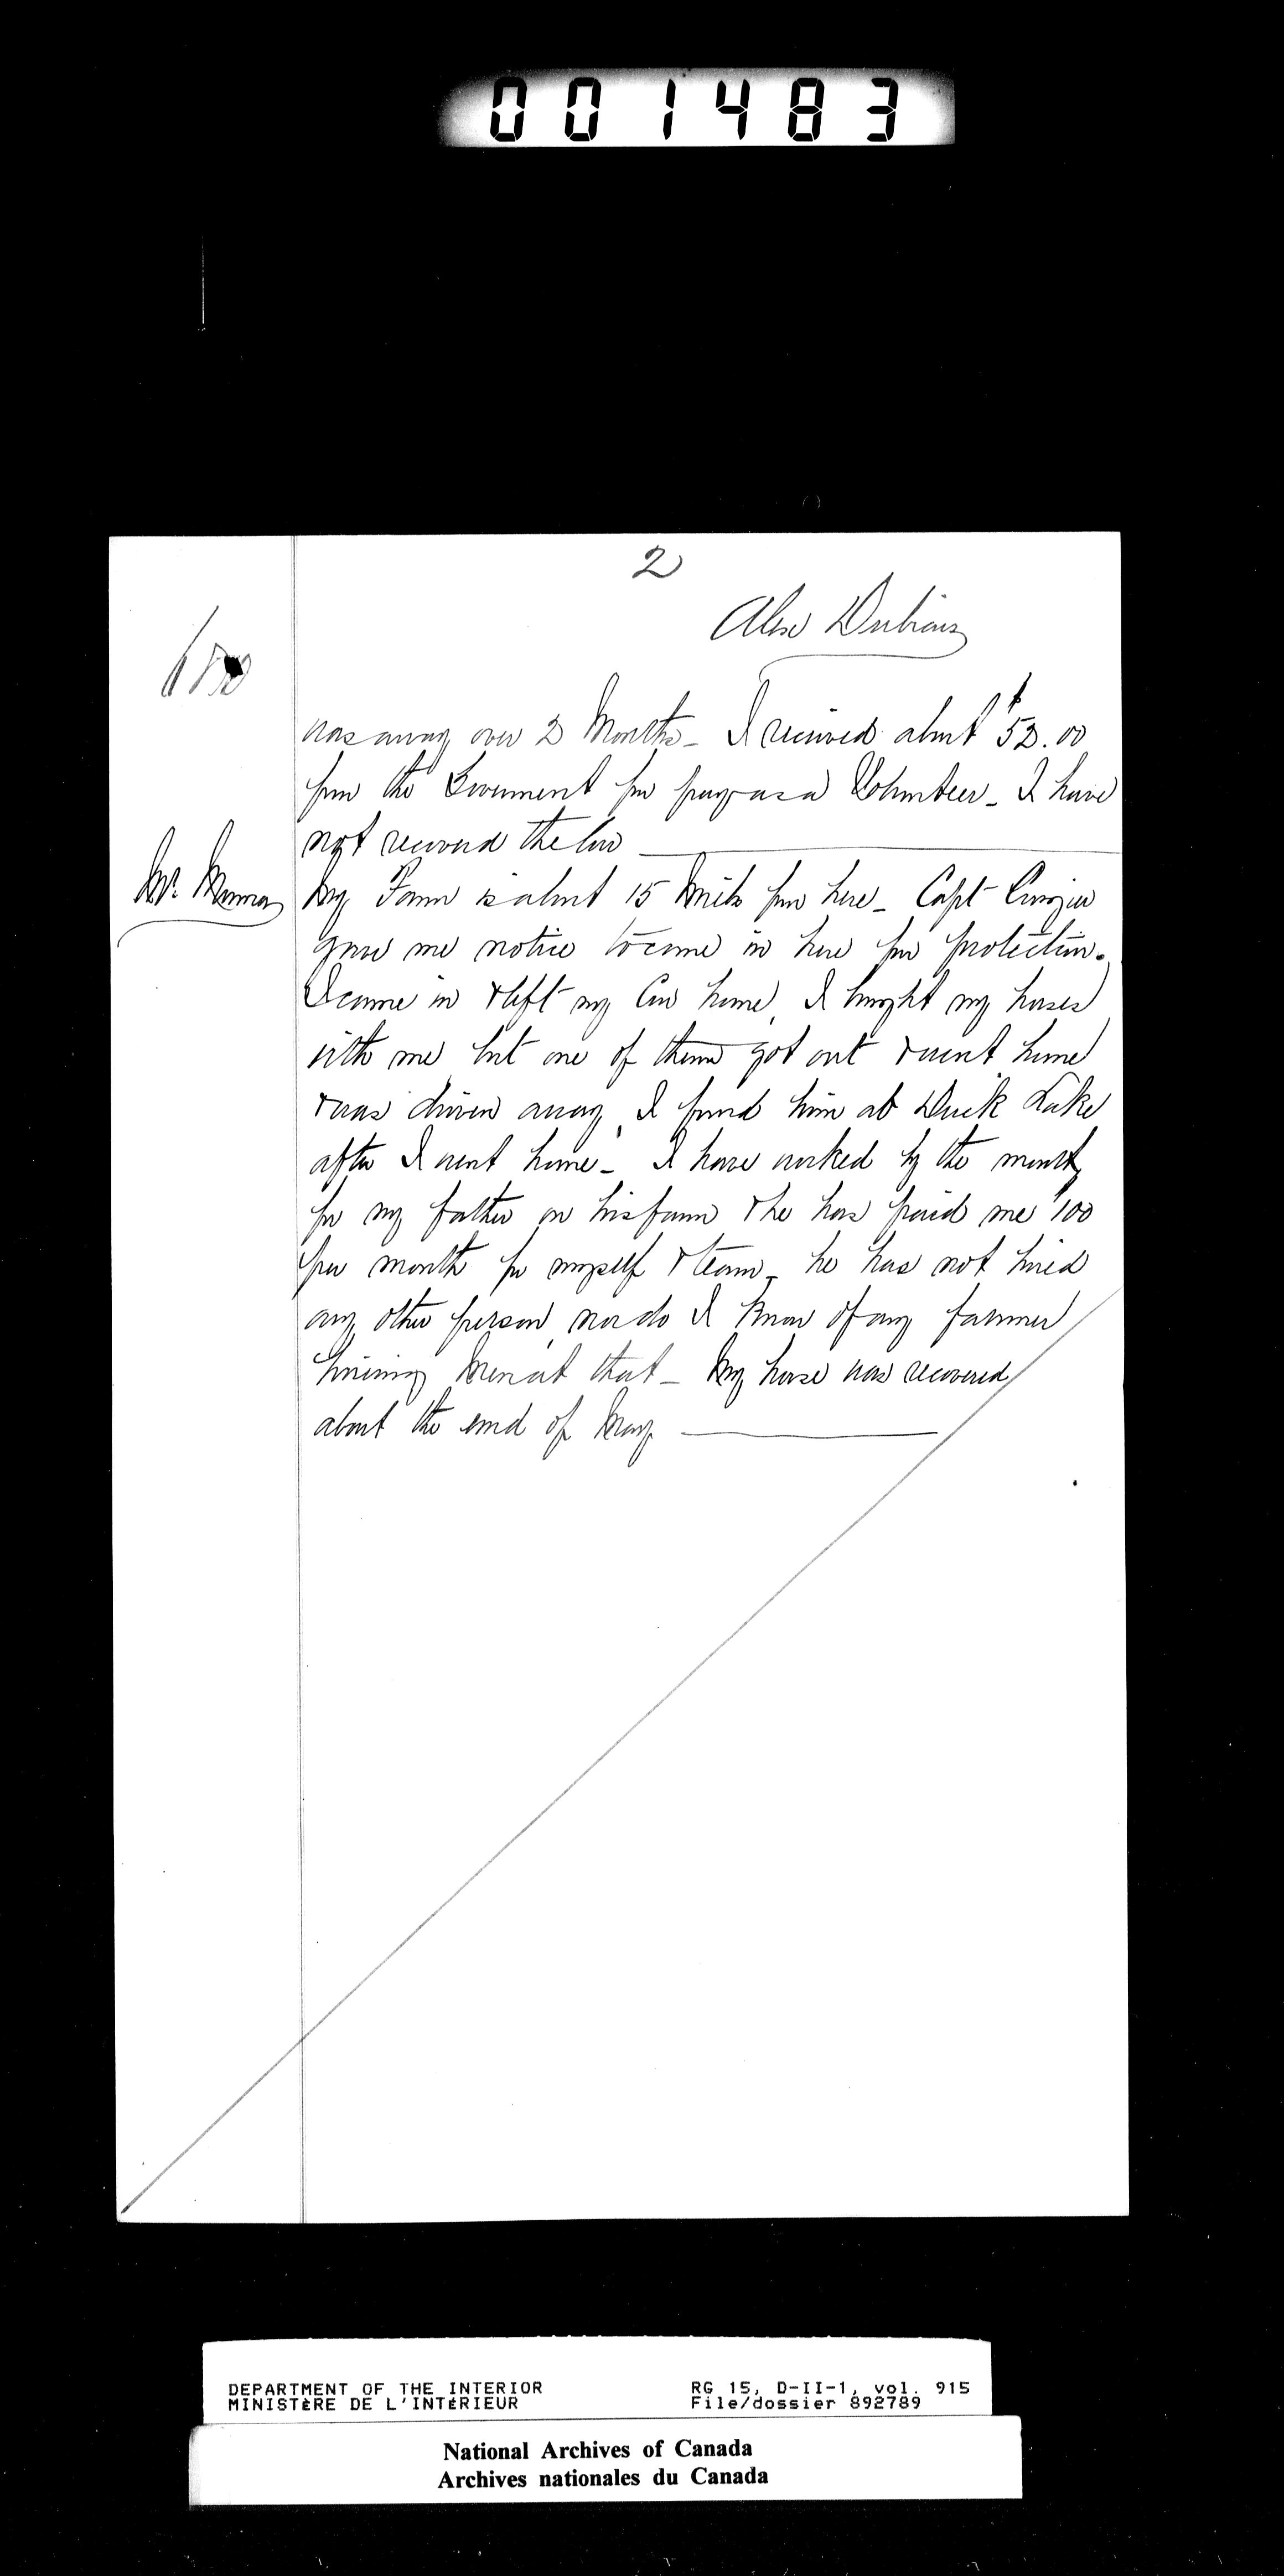 001483
2
Alex
was away over 2 Months - I received about $52.00
from the Government for pay as a Volunteer - I have
not recovered the Cow
My Farm is about 15 Miles from here - Capt Crozier
gave me notice to come in here for protection.
I came in & left my Cow home, I brought my horses
with me but one of them got out & went home
& was driven away, I found him at Duck Lake
after I went home - I have worked by the month
for my father on his farm & he has paid me $100
per month for myself & team - he has not hired
any other person, nor do I know of any farmer
hiring Men at that - My horse was recovered
about the end of May
DEPARTMENT OF THE INTERIOR
MINISTÈRE DE L'INTÉRIEUR
RG 15, D-II-1, vol. 915
File/dossier 892789
National Archives of Canada
Archives nationales du Canada